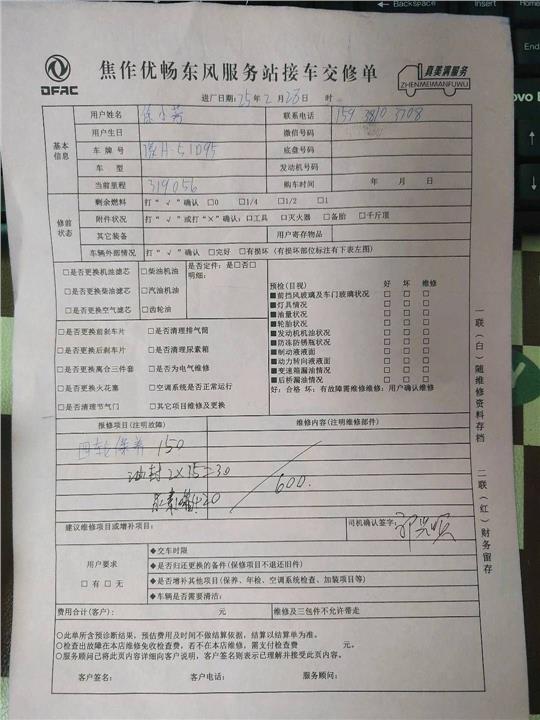 DFAC
焦作优畅东风服务站接车交修单
真美满服务
ZHENMEIMANFUWU
进厂日期:25年2月23日 时
用户姓名 联系电话 159 3810 3708
基本信息
用户生日 微信号码
车牌号 豫H-51D95 底盘号码
车型 发动机号码
当前里程 319056 购车时间 年 月 日
修前状态
剩余燃料 打“√”确认 □0 □1/4 □1/2 □1
附件状况 打“√”或打“×”确认:□工具 □灭火器 □备胎 □千斤顶
其它装备 用户寄存物品
车辆外部情况 打“√”确认 □完好 □有损坏(有损坏部位标注有下表左图)
□是否更换机油滤芯 □柴油机油 是否定件:是□否□
明细:
□是否更换柴油滤芯 □汽油机油
□是否更换空气滤芯 □齿轮油
□是否更换前刹车片 □是否清理排气筒
□是否更换后刹车片 □是否清理尿素箱
□是否更换离合三件套 □是否为电气维修
□是否更换火花塞 □空调系统是否正常运行
□是否清理节气门 □其它项目维修及更换
预检(目视) 好 坏 维修
■前挡风玻璃及车门玻璃状况 □ □ □
■灯具情况 □ □ □
■油量状况 □ □ □
■轮胎状况 □ □ □
■发动机机油状况 □ □ □
■防冻防锈瓶状况 □ □ □
■制动液液面 □ □ □
■动力转向液液面 □ □ □
■变速箱漏油情况 □ □ □
■后桥漏油情况 □ □ □
好:合格 坏:有故障需维修维修:用户确认维修
报修项目(注明故障) 维修内容(注明维修部件)
四轮保养 150
油封2×15=30
600.
建议维修项目或增补项目: 司机确认签字:
用户要求
□有□无
◆交车时限
◆是否归还更换的备件(保修项目不退还旧件)
◆是否增补其他项目(保养、年检、空调系统检查、加装项目等)
◆车辆是否需要清洁:
费用合计(客户): 元 维修及三包件不允许带走
○此单所含预诊断结果,预估费用及时间不做结算依据,结算以结算单为准。
○检查出故障在本店维修免收检查费,若不在本店维修,需支付检查费 元。
○服务顾问已将此页内容详细向客户说明,客户签名则表示已理解并接受此页内容。
客户签名: 客户电话: 服务顾问:
一联(白)随维修资料存档
二联(红)财务留存
Backspace
Insert
End
Lenovo